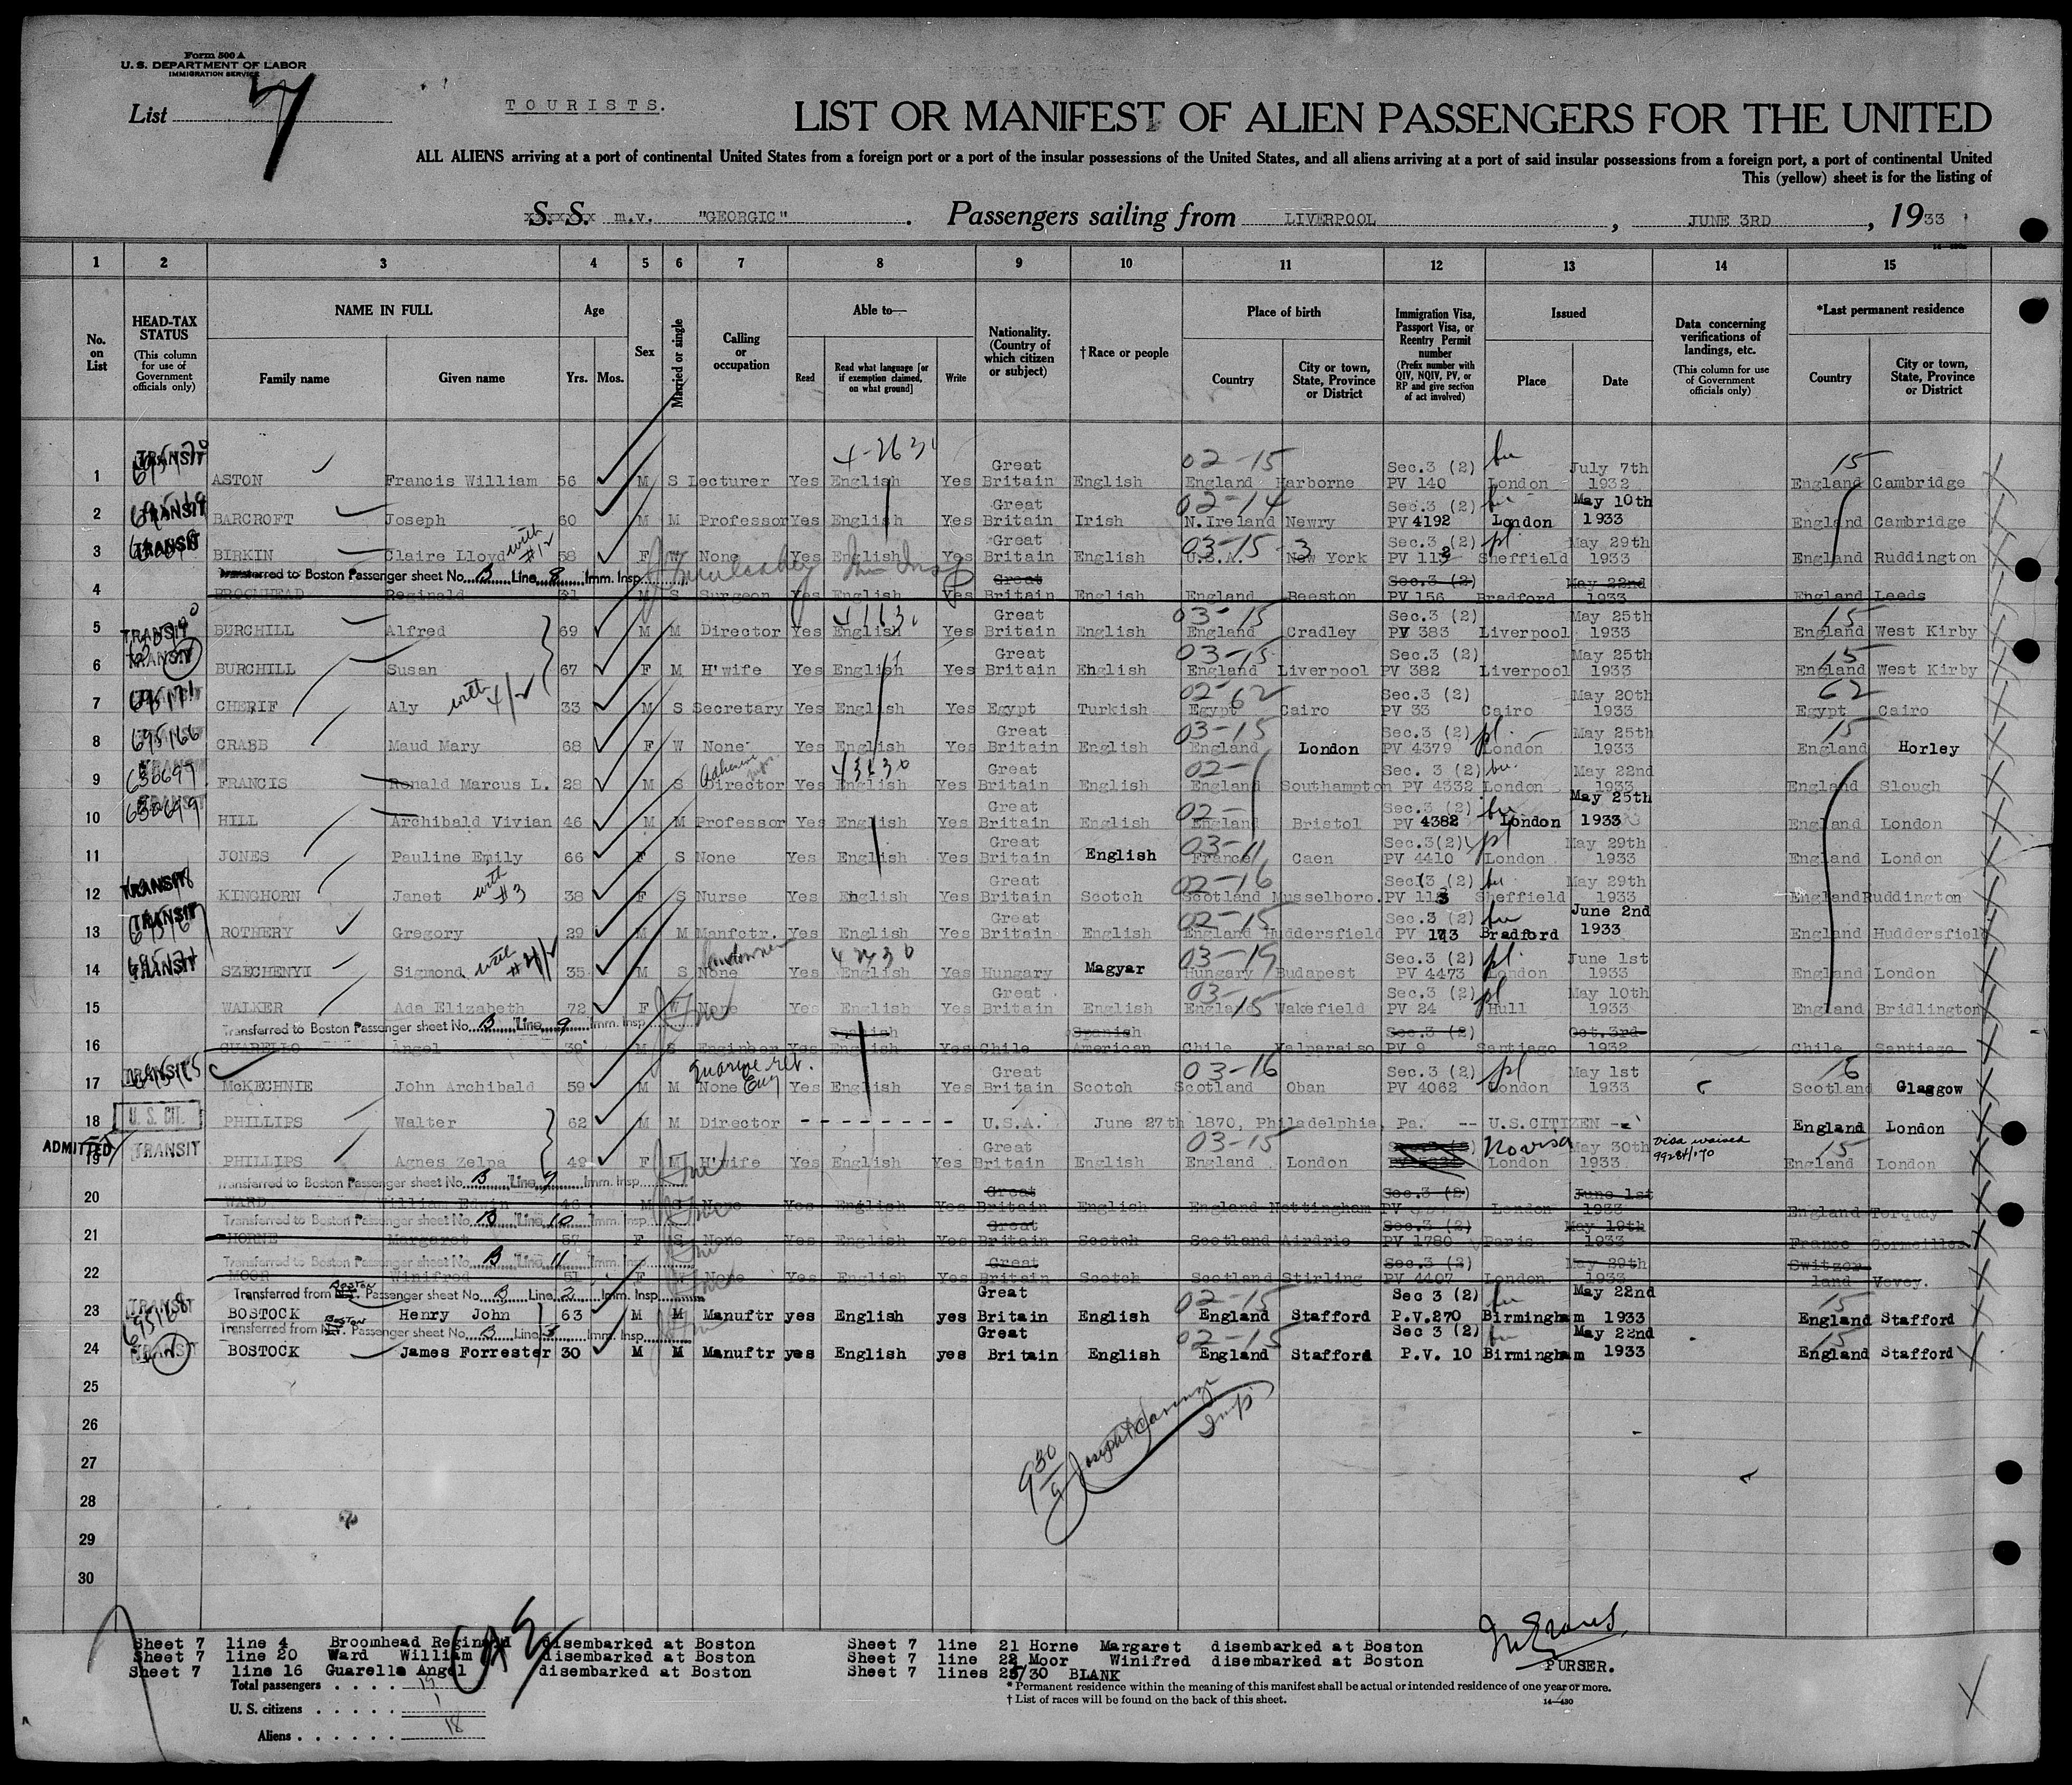 Form 500 A
U. S. DEPARTMENT OF LABOR
IMMIGRATION SERVICE
List 7
TOURISTS.
LIST OR MANIFEST OF ALIEN PASSENGERS FOR THE UNITED
ALL ALIENS arriving at a port of continental United States from a foreign port or a port of the insular possessions of the United States, and all aliens arriving at a port of said insular possessions from a foreign port, a port of continental United
This (yellow) sheet is for the listing of
S. S. m.v. "GEORGIC" . Passengers sailing from LIVERPOOL , JUNE 3RD , 1933
1 2 3 4 5 6 7 8 9 10 11 12 13 14 15
No. on List
HEAD-TAX STATUS (This column for use of Government officials only)
NAME IN FULL
Family name Given name
Age
Yrs. Mos.
Sex
Married or single
Calling or occupation
Able to—
Read Read what language [or if exemption claimed, on what ground] Write
Nationality. (Country of which citizen or subject)
†Race or people
Place of birth
Country City or town, State, Province or District
Immigration Visa, Passport Visa, or Reentry Permit number (Prefix number with QIV, NQIV, PV, or RP and give section of act involved)
Issued
Place Date
Data concerning verifications of landings, etc. (This column for use of Government officials only)
*Last permanent residence
Country City or town, State, Province or District
1 TRANSIT ASTON Francis William 56 M S Lecturer Yes English Yes Great Britain English 02-15 England Harborne Sec.3 (2) PV 140 London July 7th 1932 15 England Cambridge
2 TRANSIT BARCROFT Joseph 60 M M Professor Yes English Yes Great Britain Irish 02-14 N.Ireland Newry Sec.3 (2) PV 4192 London May 10th 1933 England Cambridge
3 TRANSIT BIRKIN Claire Lloyd with #12 58 F W None Yes English Yes Great Britain English 03-15 U.S.A. New York Sec.3 (2) PV 113 Sheffield May 29th 1933 England Ruddington
Transferred to Boston Passenger sheet No. B Line 8 Imm. Insp.
4 BROOMHEAD Reginald 31 M S Surgeon Yes English Yes Great Britain English England Beeston Sec.3 (2) PV 156 Bradford May 22nd 1933 England Leeds
5 TRANSIT BURCHILL Alfred 69 M M Director Yes English Yes Great Britain English 03-15 England Cradley Sec.3 (2) PV 383 Liverpool May 25th 1933 15 England West Kirby
6 TRANSIT BURCHILL Susan 67 F M H'wife Yes English Yes Great Britain English 03-15 England Liverpool Sec.3 (2) PV 382 Liverpool May 25th 1933 15 England West Kirby
7 695171 CHERIF Aly with 33 M S Secretary Yes English Yes Egypt Turkish 02-62 Egypt Cairo Sec.3 (2) PV 33 Cairo May 20th 1933 62 Egypt Cairo
8 695166 CRABB Maud Mary 68 F W None Yes English Yes Great Britain English 03-15 England London Sec.3 (2) PV 4379 pl. London May 25th 1933 15 England Horley
9 630697 FRANCIS Ronald Marcus L. 28 M S Director Yes English Yes Great Britain English 02- England Southampton Sec. 3 (2) PV 4332 London May 22nd 1933 England Slough
10 630699 HILL Archibald Vivian 46 M M Professor Yes English Yes Great Britain English 02- England Bristol Sec.3 (2) PV 4382 London May 25th 1933 England London
11 JONES Pauline Emily 66 F S None Yes English Yes Great Britain English 03-11 France Caen Sec.3(2) PV 4410 pl London May 29th 1933 England London
12 TRANSIT KINGHORN Janet with #3 38 F S Nurse Yes English Yes Great Britain Scotch 02-16 Scotland Musselboro. Sec.3 (2) PV 113 Sheffield May 29th 1933 England Ruddington
13 TRANSIT ROTHERY Gregory 29 M M Manfctr. Yes English Yes Great Britain English 02-15 England Huddersfield Sec.3 (2) PV 173 Bradford June 2nd 1933 England Huddersfield
14 TRANSIT SZECHENYI Sigmond with 35 M S None Landowner Yes English Yes Hungary Magyar 03-19 Hungary Budapest Sec.3 (2) PV 4473 pl. London June 1st 1933 England London
15 WALKER Ada Elizabeth 72 F W None Yes English Yes Great Britain English 03-15 England Wakefield Sec.3 (2) PV 24 pl Hull May 10th 1933 England Bridlington
Transferred to Boston Passenger sheet No. B Line 9 Imm. Insp.
16 GUARELLO Angel 39 M S Engineer Yes Spanish English Yes Chile Spanish American Chile Valparaiso Sec.3 (2) PV 9 Santiago Oct.3rd 1932 Chile Santiago
17 TRANSIT McKECHNIE John Archibald 59 M M None Yes English Yes Great Britain Scotch 03-16 Scotland Oban Sec.3 (2) PV 4062 pl London May 1st 1933 16 Scotland Glasgow
18 U. S. CIT. PHILLIPS Walter 62 M M Director - - - - - - - - U.S.A. June 27th 1870, Philadelphia, Pa. -- U.S.CITIZEN -- England London
19 ADMITTED TRANSIT PHILLIPS Agnes Zelpa 49 F M H'wife Yes English Yes Great Britain English 03-15 England London Sec.3 (2) No visa London May 30th 1933 visa waived 15 England London
Transferred to Boston Passenger sheet No. B Line 7 Imm. Insp.
20 WARD William Edwin 46 M S None Yes English Yes Great Britain English England Nottingham Sec.3 (2) PV London June 1st 1933 England Torquay
Transferred to Boston Passenger sheet No. B Line 10 Imm. Insp.
21 HORNE Margaret 57 F S None Yes English Yes Great Britain Scotch Scotland Airdrie Sec.3 (2) PV 1780 Paris May 19th 1933 France Cormeilles.
Transferred to Boston Passenger sheet No. B Line 11 Imm. Insp.
22 MOOR Winifred 51 F W None Yes English Yes Great Britain Scotch Scotland Stirling Sec.3 (2) PV 4407 London. May 29th 1933 Switzerland Vevey.
Transferred from Boston Passenger sheet No. B Line 2 Imm. Insp.
23 TRANSIT 695168 BOSTOCK Henry John 63 M M Manuftr yes English yes Great Britain English 02-15 England Stafford Sec 3 (2) P.V.270 Birmingham May 22nd 1933 15 England Stafford
Transferred from Boston Passenger sheet No. B Line 3 Imm. Insp.
24 TRANSIT BOSTOCK James Forrester 30 M M Manuftr yes English yes Great Britain English 02-15 England Stafford Sec 3 (2) P.V. 10 Birmingham May 22nd 1933 15 England Stafford
25
26
27
28
29
30
Sheet 7 line 4 Broomhead Reginald disembarked at Boston Sheet 7 line 21 Horne Margaret disembarked at Boston
Sheet 7 line 20 Ward William disembarked at Boston Sheet 7 line 22 Moor Winifred disembarked at Boston
Sheet 7 line 16 Guarello Angel disembarked at Boston Sheet 7 lines 25/30 BLANK
PURSER.
Total passengers . . . . 19
U. S. citizens . . . . . 1
Aliens . . . . . . 18
* Permanent residence within the meaning of this manifest shall be actual or intended residence of one year or more.
† List of races will be found on the back of this sheet.
14—430